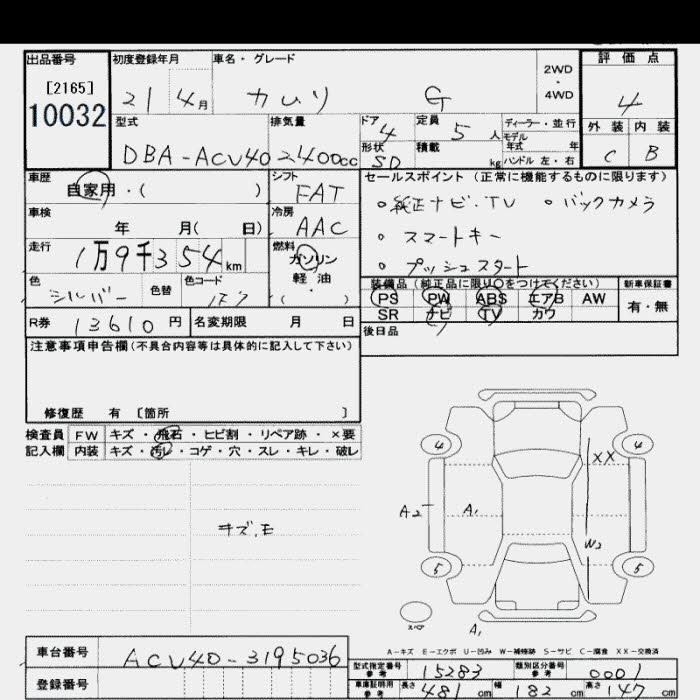 出品番号 初度登録年月 車名・グレード 2WD・4WD 評価点
[2165] 21 4月 カムリ G 4
10032 型式 排気量 ドア 定員 ディーラー・並行 外装 内装
DBA-ACV40 2400cc 4 5人 モデル年式 年 C B
形状 積載 SD kg ハンドル 左・右
車歴 シフト セールスポイント(正常に機能するものに限ります)
自家用・( ) FAT ・純正ナビ・TV ・バックカメラ
車検 冷房 ・スマートキー
年 月( 日) AAC ・プッシュスタート
走行 燃料
1万9千354km ガソリン
軽油
( )
色 色替 色コード 装備品(純正品に限り○をつけてください) 新車保証書
シルバー PS PW ABS エアB AW 有・無
R券 13610円 名変期限 月 日 SR ナビ TV カワ
後日品
注意事項申告欄(不具合内容等は具体的に記入して下さい)
修復歴 有 〔箇所 〕
検査員 FW キズ・飛石・ヒビ割・リペア跡・×要
記入欄 内装 キズ・汚レ・コゲ・穴・スレ・キレ・破レ
4 4
XX
A2 A1
キズ.モ
W2
5 5
スペア
A1
A-キズ E-エクボ U-凹み W-補修跡 S-サビ C-腐食 XX-交換済
車台番号 ACV40-3195036
型式指定番号 参考 15283 類別区分番号 参考 0001
登録番号 車庫証明用 参考 長さ 481cm 幅 182cm 高さ 147cm